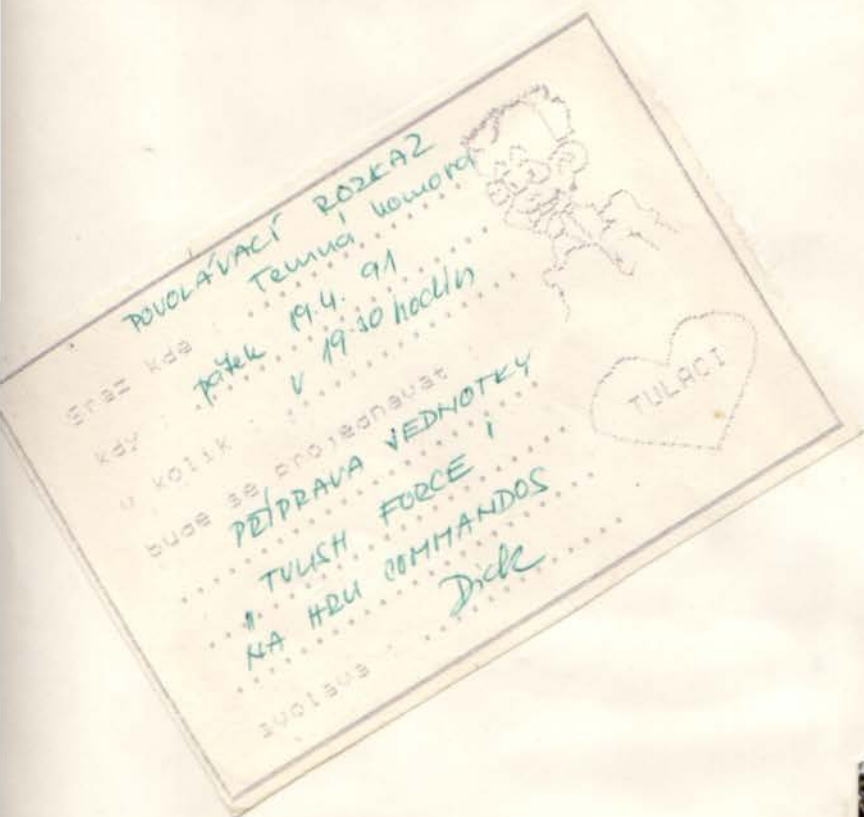 POVOLÁVACÍ ROZKAZ
sraz kde : Temná komora
kdy : pátek 19.4. 91
v kolik : v 19.30 hodin
bude se projednavat :
PŘÍPRAVA JEDNOTKY
"TULISH FORCE"
NA HRU COMMANDOS
svolava : Dick
TULACI